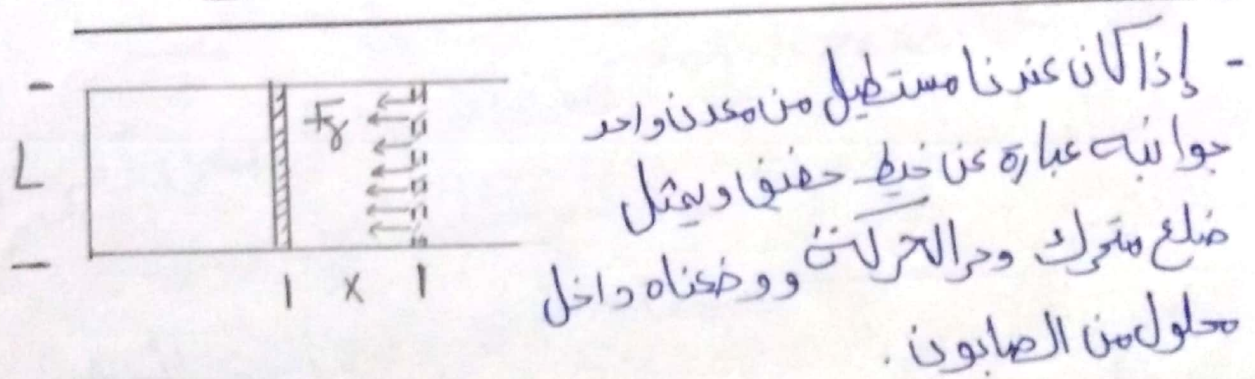 - إذا كان عندنا مستطيل من معدن واحد
جوانبه عبارة عن خيط خفيف ويمثل
ضلع متحرك وحر الحركة ووضعناه داخل
محلول من الصابون.
L
Fγ
x